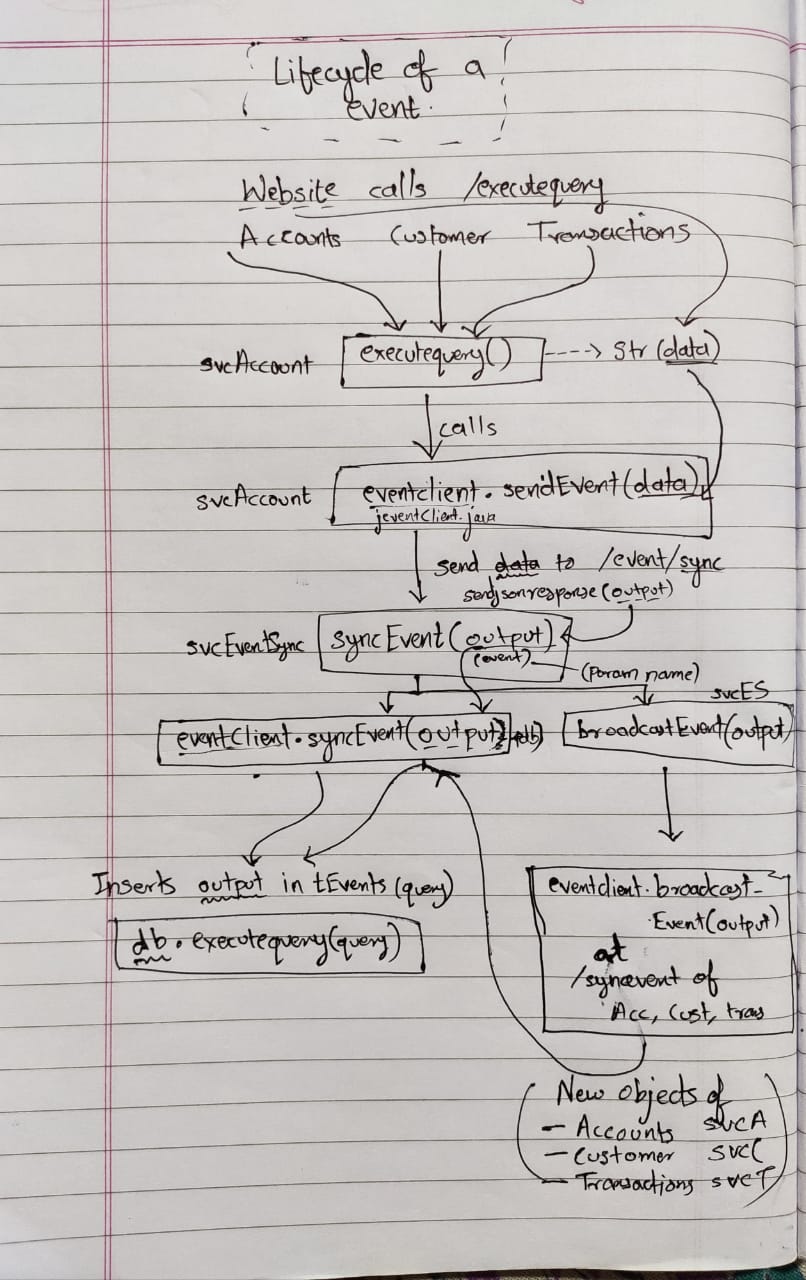 Lifecycle of a
event.
Website calls /executequery
Accounts Customer Transactions
svcAccount executequery() ----> str (data)
calls
svcAccount eventclient.sendEvent(data)
jeventClient.java
send data to /event/sync
sendjsonresponse(output)
svcEventSync syncEvent(output)
(event)
(Param name)
svcES
eventClient.syncEvent(output) broadcastEvent(output)
Inserts output in tEvents (query)
db.executequery(query)
eventclient.broadcast-
Event(output)
at
/syncevent of
Acc, Cust, trans
New objects of
- Accounts svcA
- Customer svcC
- Transactions svcT